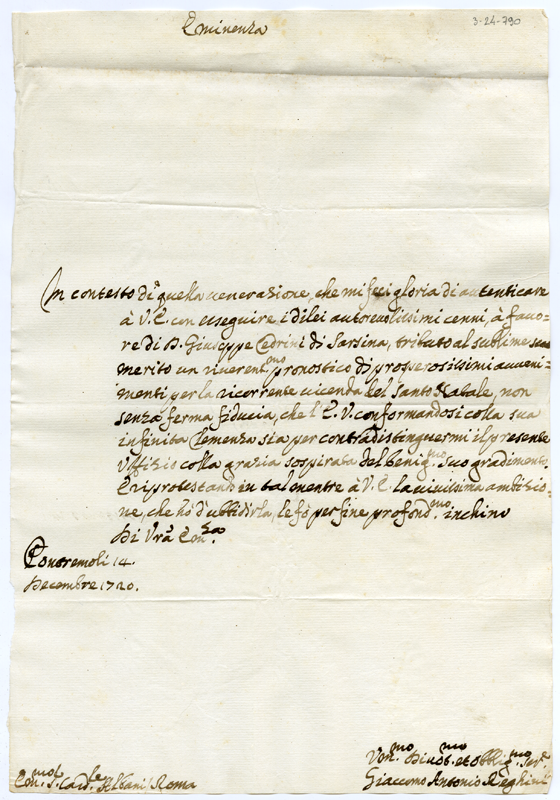 Eminenza
3-24-790
In contesto di quella venerazione, che mi feci gloria di autenticare
à V. E. con esseguire i di lei autorevolissimi cenni, à favo=
re di D. Giuseppe Cedrini di Sarsina, tributo al sublime suo
merito un riverent.mo pronostico di prosperosissimi avveni=
menti per la ricorrente vicenda del Santo Natale, non
senza ferma fiducia, che l'E. V. conformandosi colla sua
infinita Clemenza sia per contradistinguermi il presente
Uffizio colla grazia sospirata del benig.mo suo gradimento
E riprotestando in tal mentre à V. E. la vivissima ambizio=
ne, che hò d'ubbidirla, le fò per fine profond.mo inchino
Di Vrã Em.za
Pontremoli 14.
Decembre 1720.
Vm.mo Divot.mo et Obblig.mo Ser.e
Em.mo S. Card.le Albani Roma
Giacomo Antonio Reghini